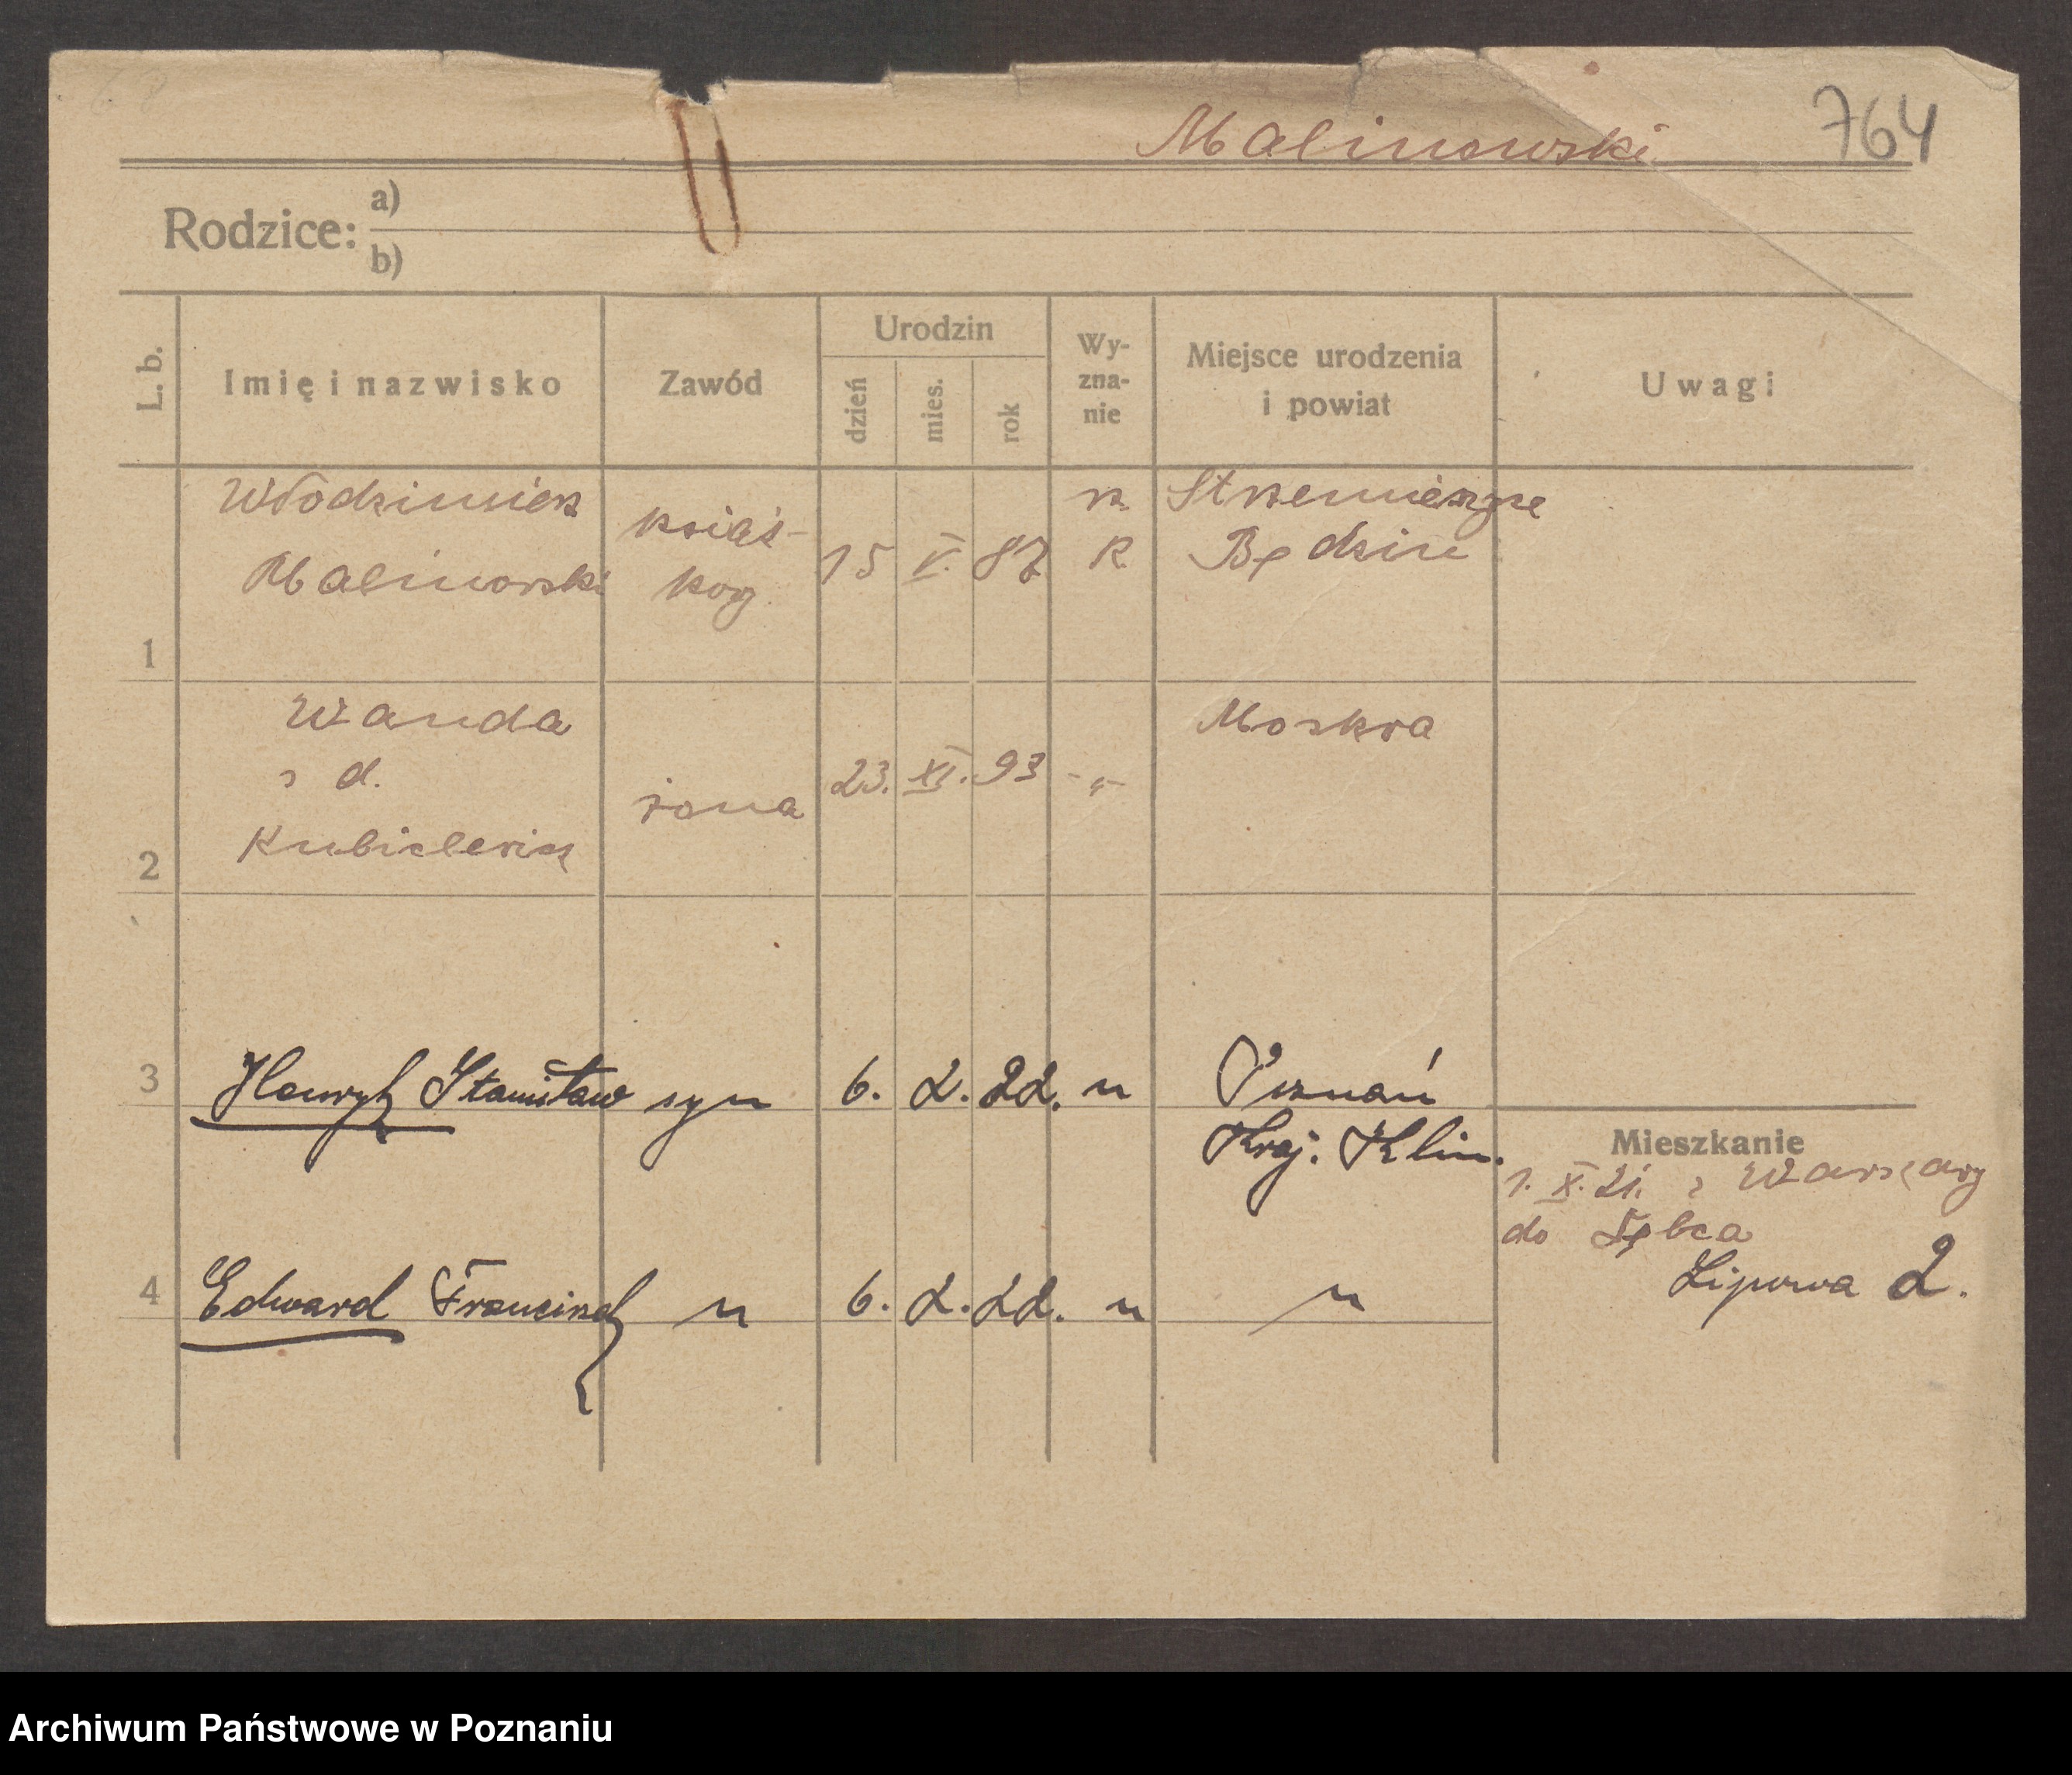 Malinowski 764
Rodzice: a)
b)
L. b.
Imię i nazwisko
Zawód
Urodzin
dzień
mies.
rok
Wy-
zna-
nie
Miejsce urodzenia
i powiat
Uwagi
1
Włodzimierz
Malinowski
książ-
kowy
15 V. 87
r.
k.
Będzin
2
Wanda
z d.
żona
23. XI. 93 -„-
Moskwa
3 Henryk Stanisław syn 6. 2. 22. „ Poznań
Kraj. Klin.
Mieszkanie
1. X. 21. z Warszawy
do Dębca
Lipowa 2.
4 Edward Franciszek „ 6. 2. 22. „ „
Archiwum Państwowe w Poznaniu